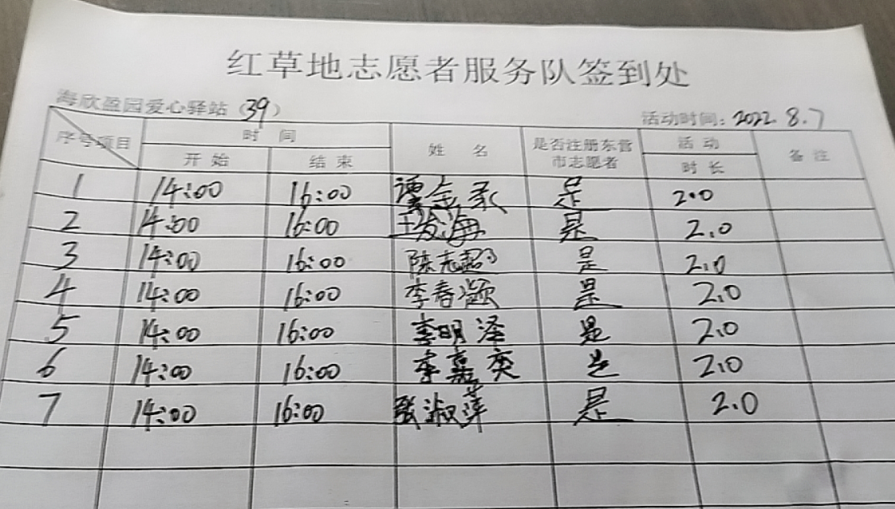 红草地志愿者服务队签到处
海欣盈园爱心驿站（39） 活动时间：2022.8.7
序号项目 时间 姓名 是否注册东营市志愿者 活动 备注
开始 结束 时长
1 14:00 16:00 是 2.0
2 14:00 16:00 王发海 是 2.0
3 14:00 16:00 陈志超 是 2.0
4 14:00 16:00 李春灏 是 2.0
5 14:00 16:00 李明泽 是 2.0
6 14:00 16:00 李嘉奕 是 2.0
7 14:00 16:00 张淑萍 是 2.0